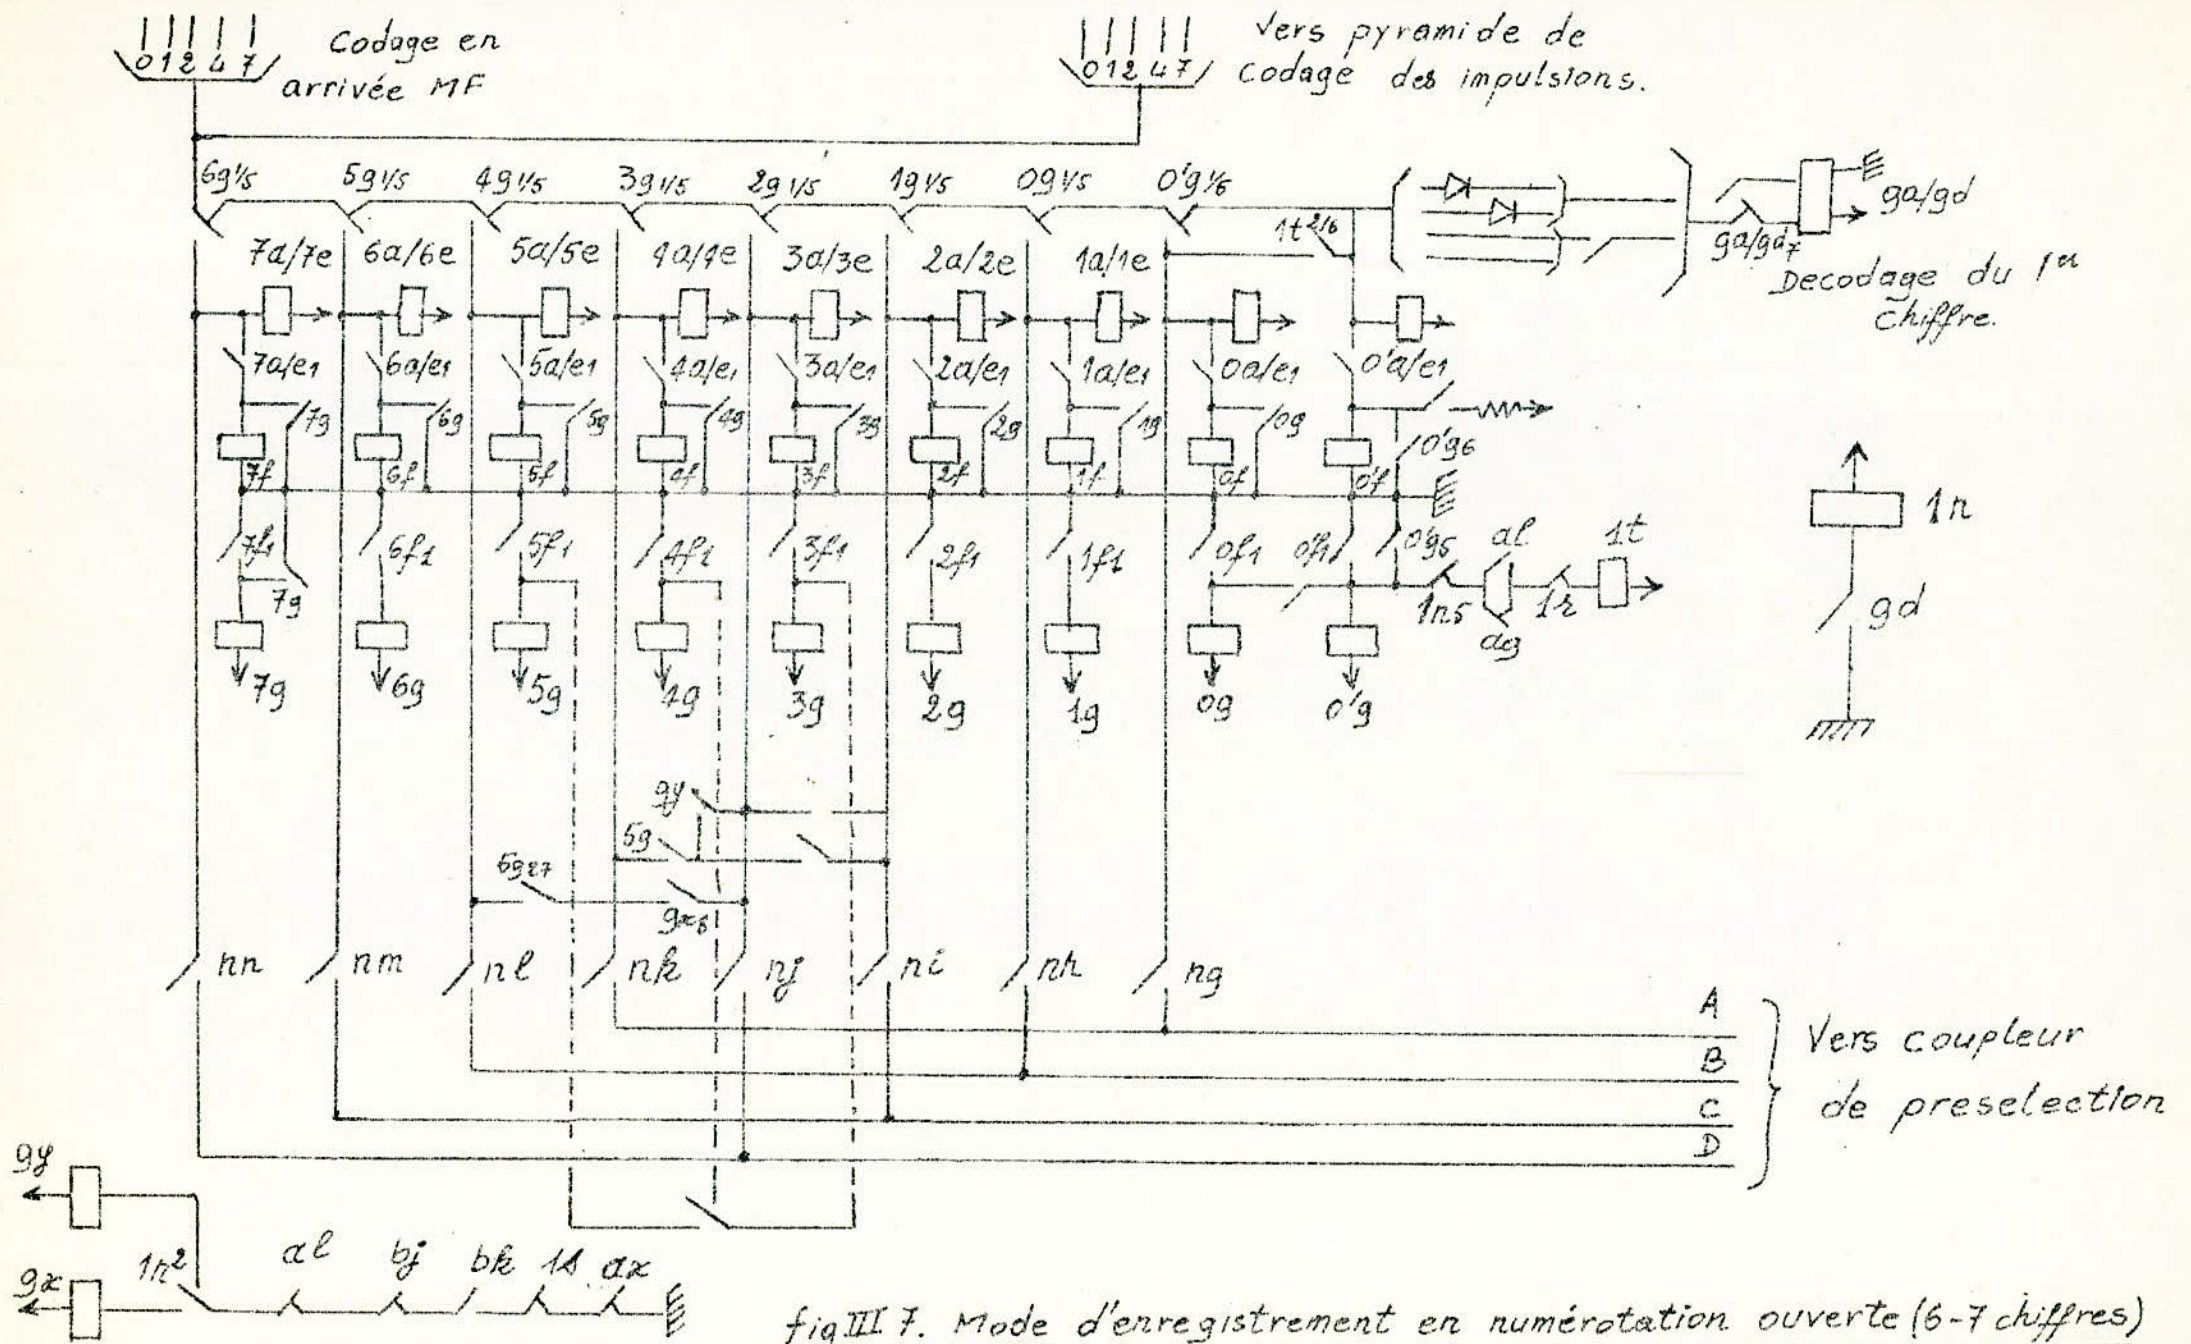 Codage en
arrivée MF
0 1 2 4 7
Vers pyramide de
Codage des impulsions.
0 1 2 4 7
6g1/5 5g1/5 4g1/5 3g1/5 2g1/5 1g1/5 0g1/5 0'g1/6
1t2/6
ga/gd
ga/gd7
Decodage du 1er
chiffre.
7a/7e 6a/6e 5a/5e 4a/4e 3a/3e 2a/2e 1a/1e
7a/e1 6a/e1 5a/e1 4a/e1 3a/e1 2a/e1 1a/e1 0a/e1 0'a/e1
7g 6g 5g 4g 3g 2g 1g 0g 0'g6
7f 6f 5f 4f 3f 2f 1f 0f 0'f
1n
7f1 6f1 5f1 4f1 3f1 2f1 1f1 0f1 0'f1 0'g5 al 1t
7g
1n5 ag 1r
gd
7g 6g 5g 4g 3g 2g 1g 0g 0'g
gy
5g
5g27
gx8
nn nm nl nk nj ni nh ng
A
B
C
D
Vers coupleur
de preselection
gy
gx
1n2 al bj bk 1s ax
fig III 7. Mode d'enregistrement en numérotation ouverte (6-7 chiffres)